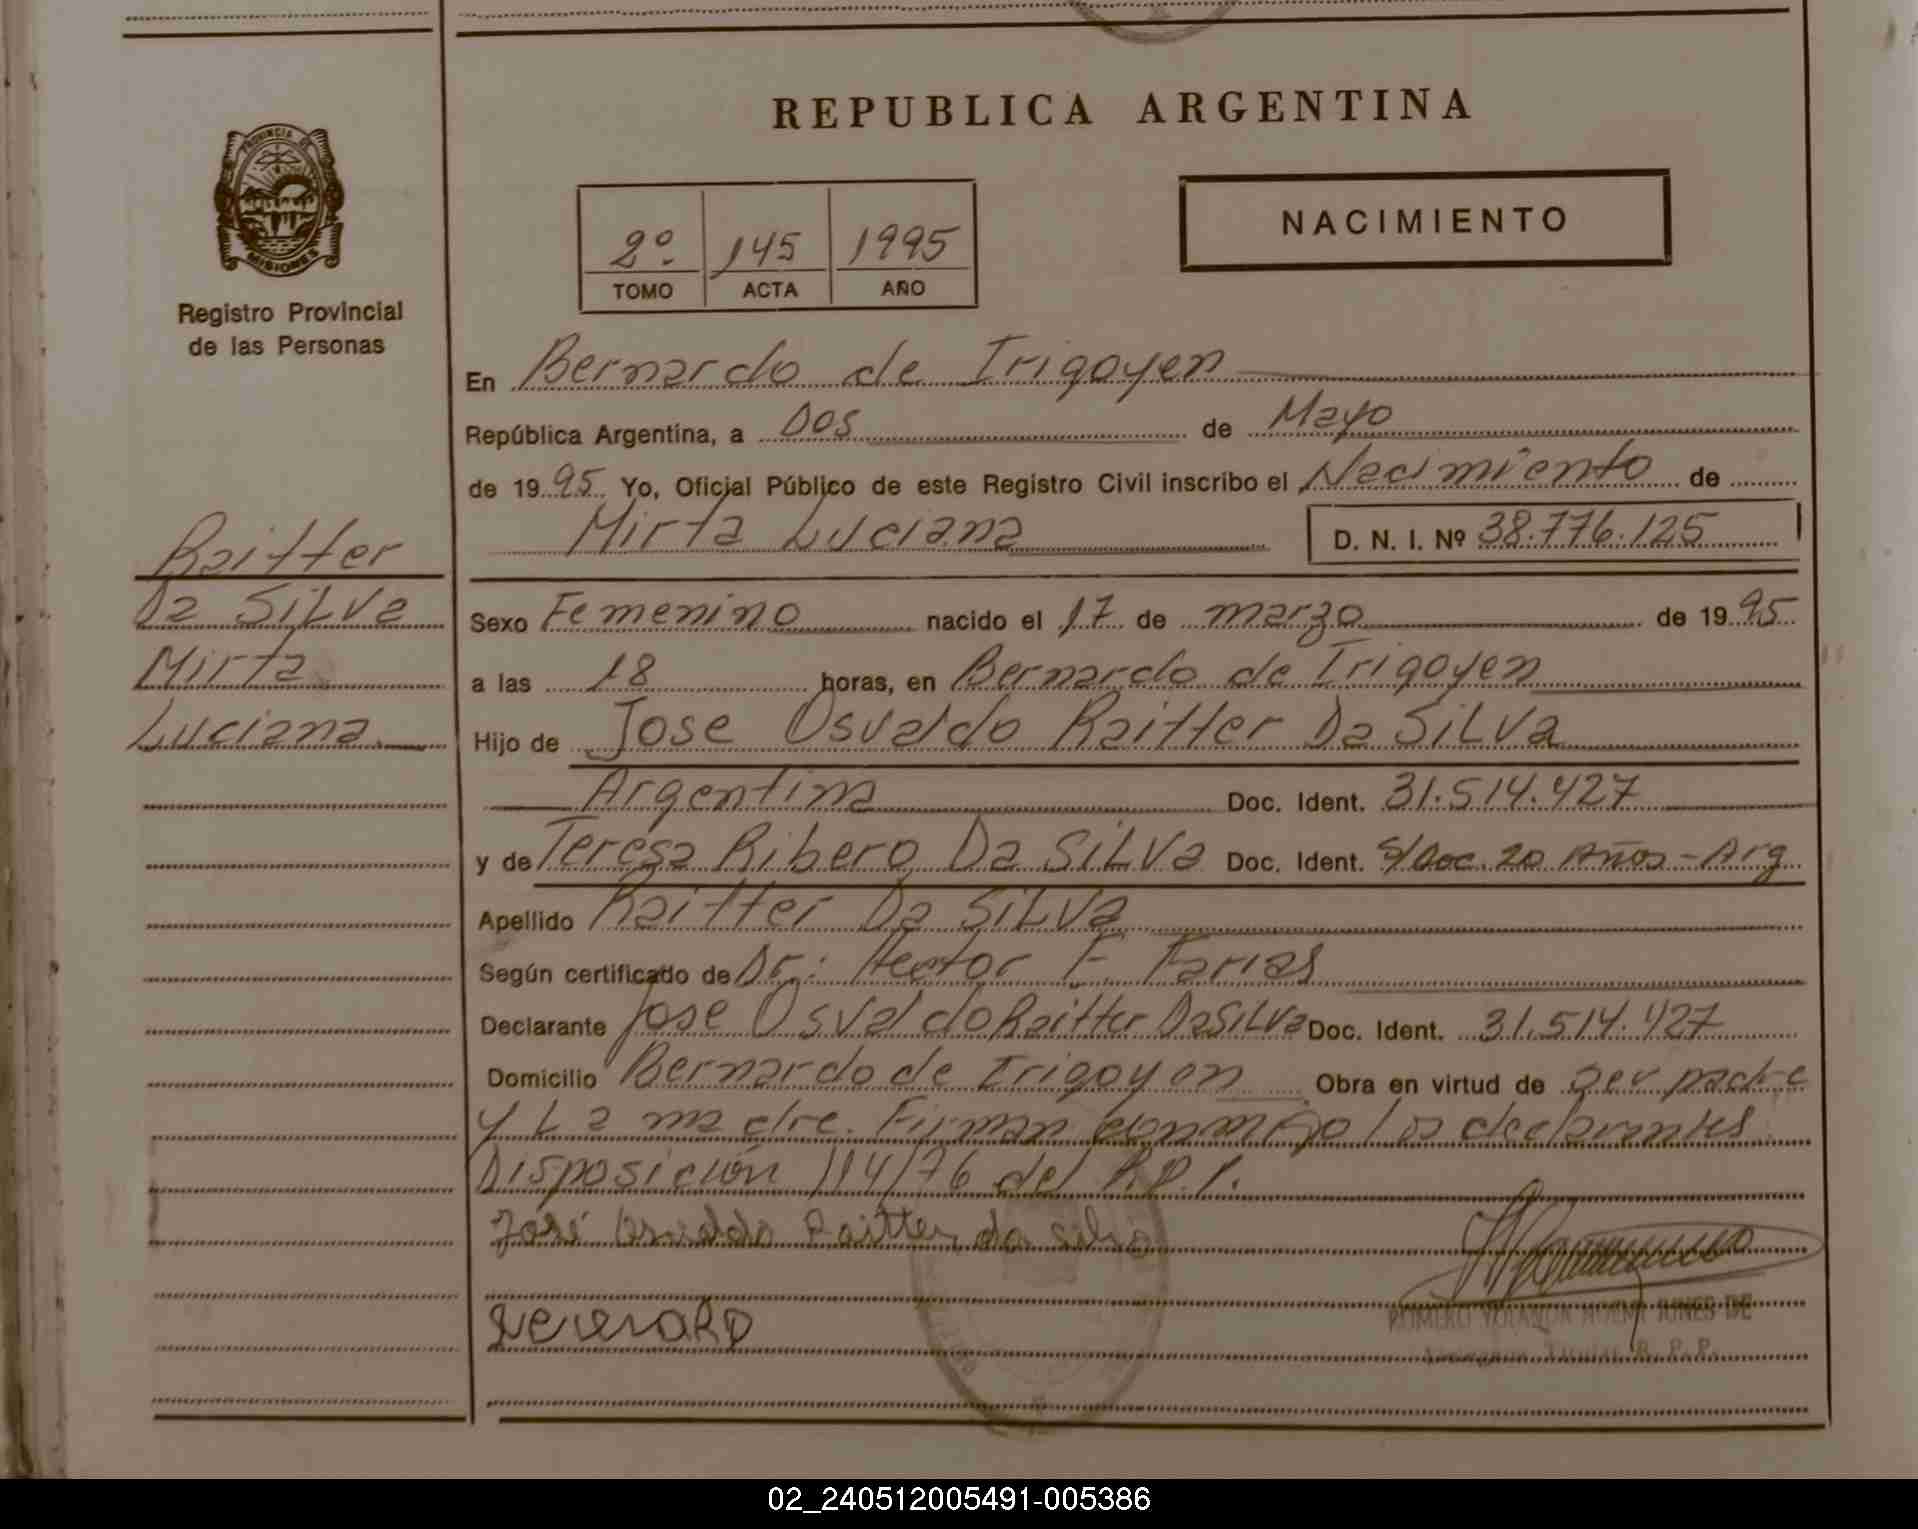 REPUBLICA ARGENTINA
PROVINCIA DE
MISIONES
Registro Provincial
de las Personas
2º 145 1995
TOMO ACTA AÑO
NACIMIENTO
En Bernardo de Irigoyen
República Argentina, a Dos de Mayo
de 1995 Yo, Oficial Público de este Registro Civil inscribo el Nacimiento de
Mirta Luciana D. N. I. Nº 38.776.125
Raitter
Da SiLVa
Mirta
Luciana
Sexo Femenino nacido el 17 de marzo de 1995
a las 18 horas, en Bernardo de Irigoyen
Hijo de Jose Osvaldo Raitter Da SiLVa
Argentina Doc. Ident. 31.514.427
y de Teresa Ribero Da SiLVa Doc. Ident. S/Doc. 20 Años - Arg
Apellido Raitter Da SiLVa
Según certificado de Dr.: Hector F. Farias
Declarante Jose Osvaldo Raitter DaSiLVa Doc. Ident. 31.514.427
Domicilio Bernardo de Irigoyen Obra en virtud de ser padre
y La madre. Firman conmigo los declarantes
Disposición 114/76 del R.P.P.
José Osvaldo Raitter da silva
ROMERO YOLANDA NOEMI JUNES DE
Titular R. P. P.
02_240512005491-005386